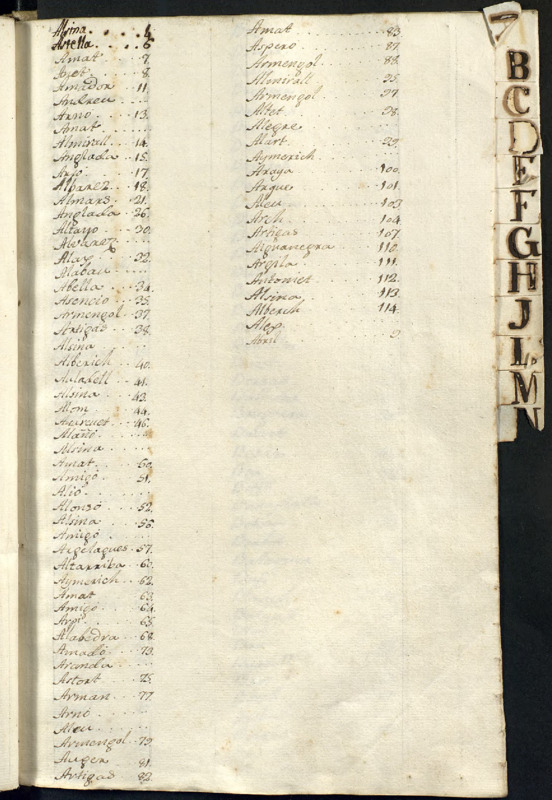 Alsina. . . . 4.
Astella . . . 6.
Amat . . . . 7.
8.
Amador . . 11.
Andreu . . . .
Arno . . . 13.
Amat . . . .
Almirall . . 14.
Anglada . . 15.
17.
Albarez . . 18.
Almars . . 21.
Anglada . . 26.
Altayo . . . 30.
Alvarez . . .
32.
Alabau . . . .
Abella . . . 34.
Asencio . . 35.
Armengol . . 37.
Artigas . . 38.
Alsina . . . .
Alberich . . 40.
41.
Alsina . . . 43.
Alom . . . 44.
46.
Alsina . . . .
Amat . . . 50.
Amigó . . . 51.
Alió . . . .
Alonso . . . 52.
Alsina . . . 56.
Amigó . . . .
Argelagues . 57.
Altarriba . . 60.
Aymerich . . 62.
Amat . . . 63.
Amigó . . . 64.
65.
Alabedra . . 68.
Amadó . . . 73.
Aranda . . . .
Astort . . . 75.
Arman . . . 77.
Arnó . . . .
Aleu . . . .
Armengol . 79.
Auger . . . 81.
Artigas . . 82.
Amat . . . 83.
Aspero . . . 87.
Armengol . . 88.
Almirall . . 95.
Armengol . . 97.
Altet . . . 98.
Alegre . . . .
Alart . . . 99.
Aymerich . . .
Araga . . . 100.
101.
Aleu . . . 103.
Arch . . . 104.
Artigas . . 107.
Aiguanegra . . 110.
Argila . . . 111.
Antoniet . . 112.
Alsina . . . 113.
Alberch . . 114.
Abril
B
C
D
E
F
G
H
J
L
M
N